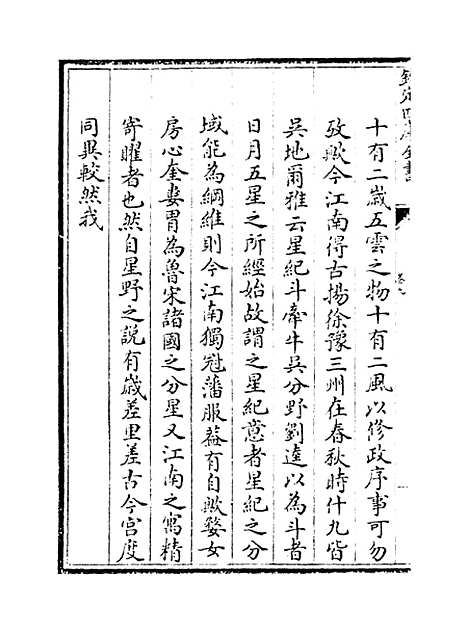 欽定四庫全書
卷七
十有二歲五雲之物十有二風以修政序事可勿
攷歟今江南得古揚徐豫三州在春秋時什九皆
吳地爾雅云星紀斗牽牛吳分野劉逵以為斗者
日月五星之所經始故謂之星紀意者星紀之分
域能為綱維則今江南獨冠藩服葢有自歟婺女
房心奎婁胃為魯宋諸國之分星又江南之寓精
寄曜者也然自星野之說有歲差里差古今宫度
同異較然我